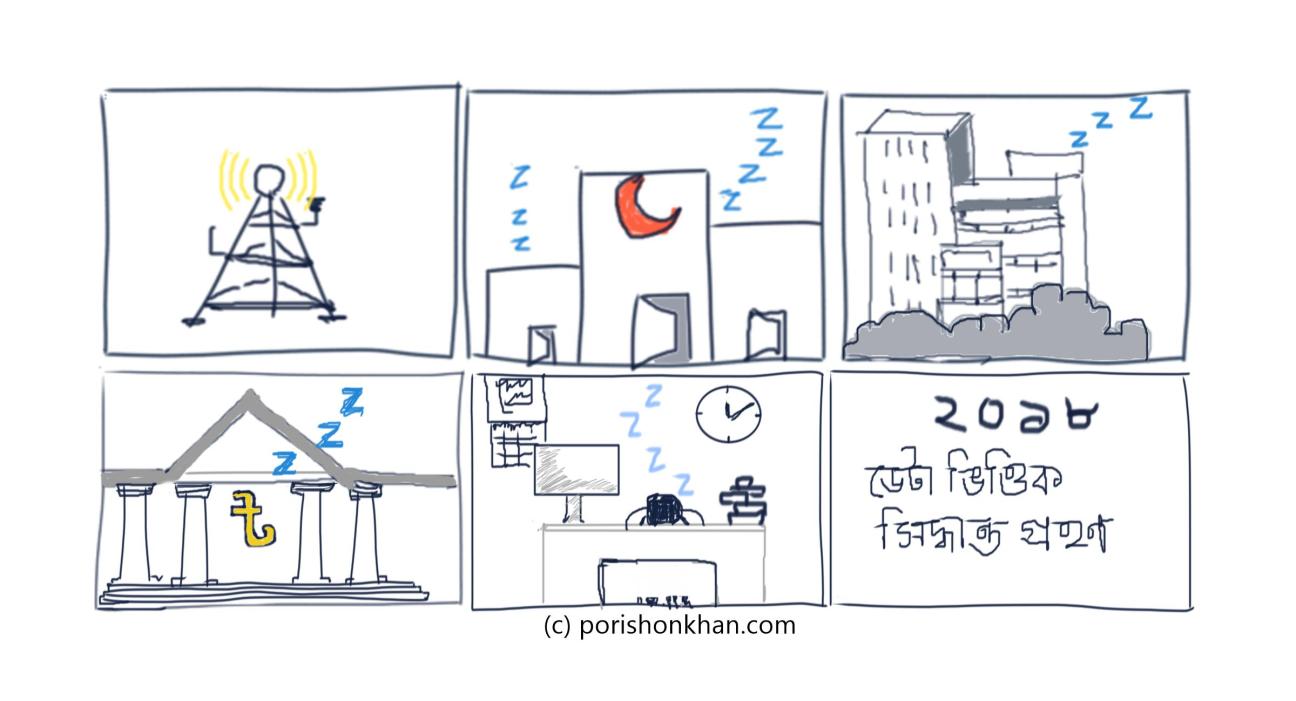 Z
Z
Z
Z
Z
Z
Z
Z
Z
Z
Z
Z
Z
৳
Z
Z
Z
Z
২০১৮
ডেটা ভিত্তিক
সিদ্ধান্ত গ্রহণ
(c) porishonkhan.com